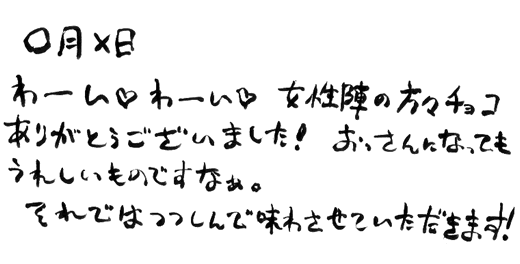 〇月×日
わーい♡わーい♡ 女性陣の方々チョコ
ありがとうございました! おっさんになっても
うれしいものですなぁ。
それではつつしんで味わさせていただきます!